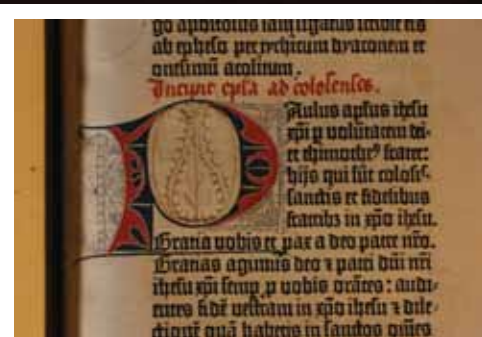 go apostolus iam ligatus scribit eis
ab epheso per tychicum dyaconem et
onesimū acolitum.
Incipit epla ad colosenses.
PAulus aplus ihesu
xpi p volūtatem dei
et thimotheꝰ frater:
hijs qui sūt colosſ
sanctis et fidelibus
fratribꝫ in xpō ihesu.
Gratia vobis et pax a deo patre nrō.
Gratias agimus deo ⁊ patri dni nri
ihesu xpi semp p vobis orātes: audi-
entes fidē vestram in xpō ihesu ⁊ dile-
ctionē quā habetis in sanctos omēs